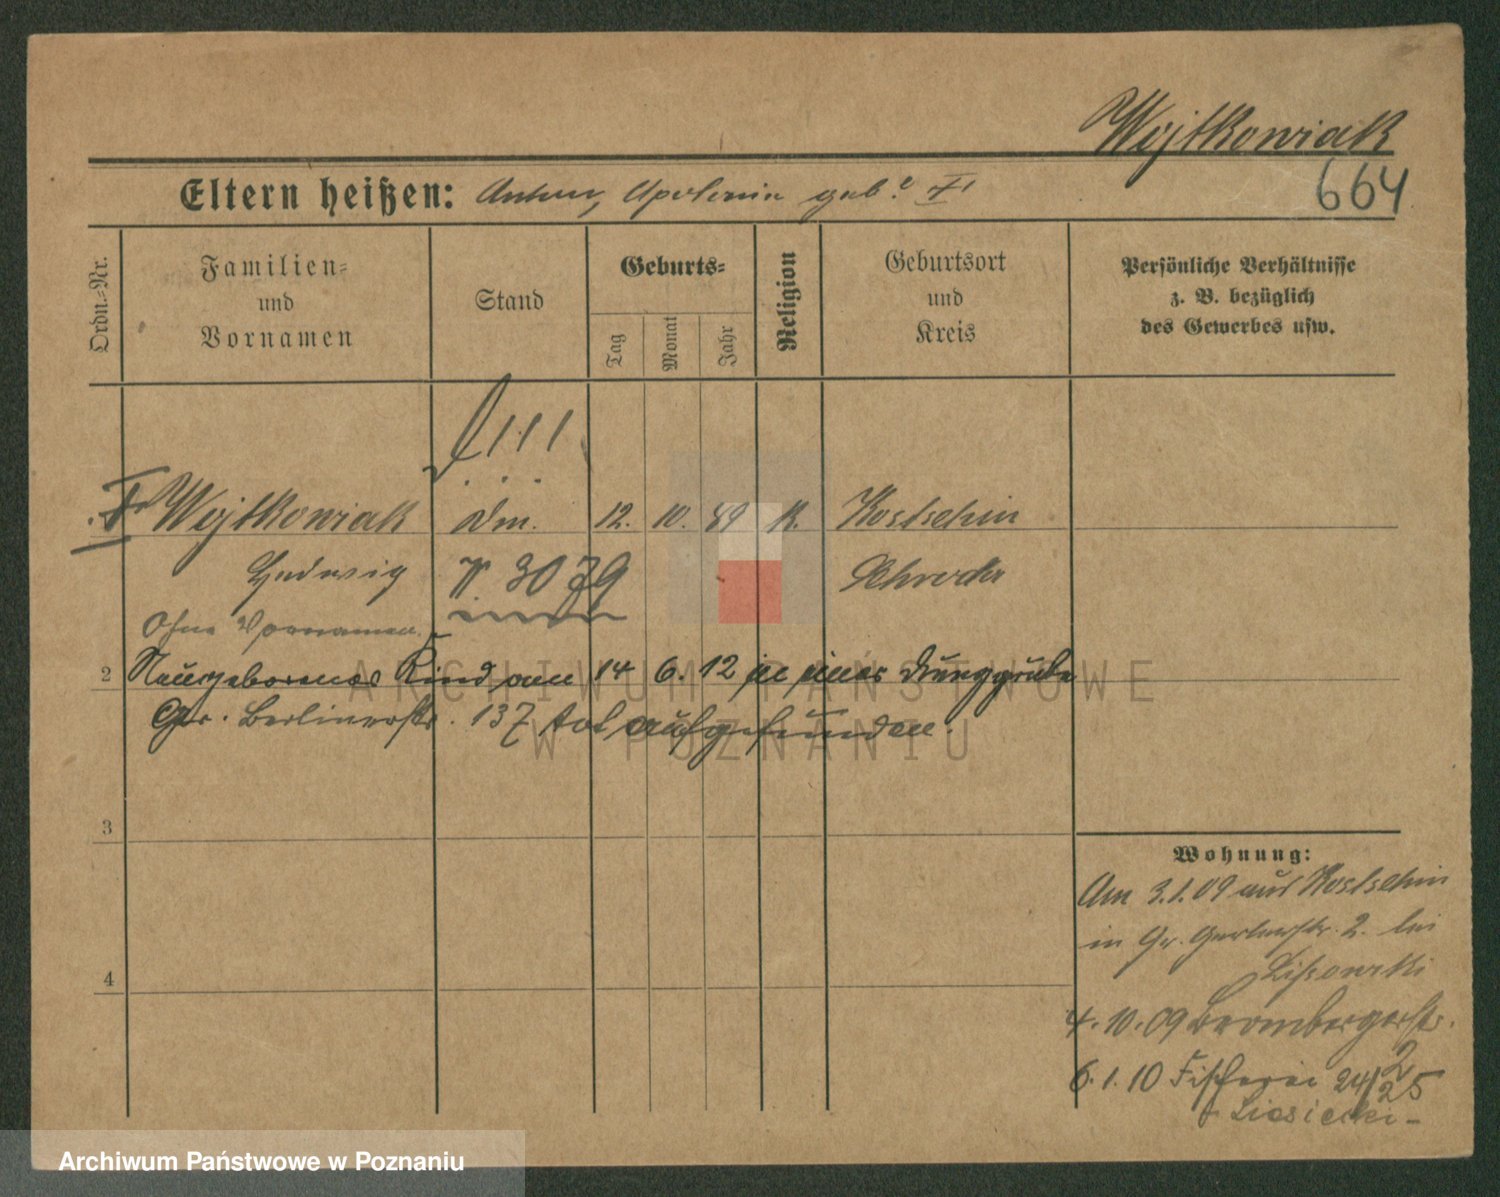 Wojtkowiak
664
Eltern heißen: Anton, Apolonia geb.
Ordn=Nr.
Familien=
und
Vornamen
Stand
Geburts=
Tag
Monat
Jahr
Religion
Geburtsort
und
Kreis
Persönliche Verhältnisse
z. B. bezüglich
des Gewerbes usw.
Wojtkowiak 12. 10. 89 K. Kostschin
Ludwig 3079 Schroda
Ohne Vornamen.
2 Neugeborenes Kind am 14 6. 12 in einer Dunggrube
Gr. Berlinerstr. 137 tot aufgefunden.
3
4
Wohnung:
Am 3.1.09 aus Kostschin
in Gr. Gerberstr. 2. bei
4.10.09 Brombergerstr.
6.1.10 Fischerei 24/25
2
ARCHIWUM PAŃSTWOWE
W POZNANIU
Archiwum Państwowe w Poznaniu